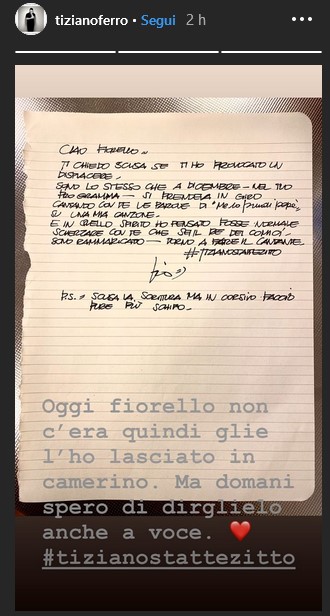 tizianoferro • Segui 2 h
CIAO FIORELLO~
TI CHIEDO SCUSA SE TI HO PROVOCATO UN
DISPIACERE~
SONO LO STESSO CHE A DICEMBRE — NEL TUO
PROGRAMMA — SI PRENDEVA IN GIRO
CANTANDO CON TE LE PAROLE DI "Me lo prendi papà",
SU UNA MIA CANZONE.
E IN QUELLO SPIRITO HO PENSATO FOSSE NORMALE
SCHERZARE CON TE CHE SEI IL RE DEI COMICI.
SONO RAMMARICATO — TORNO A FARE IL CANTANTE.
#TIZIANOSTATTEZITTO
P.S.: SCUSA LA SCRITTURA MA IN CORSIVO FACCIO
PURE PIÙ SCHIFO~
Oggi fiorello non
c'era quindi glie
l'ho lasciato in
camerino. Ma domani
spero di dirglielo
anche a voce. ❤️
#tizianostattezitto